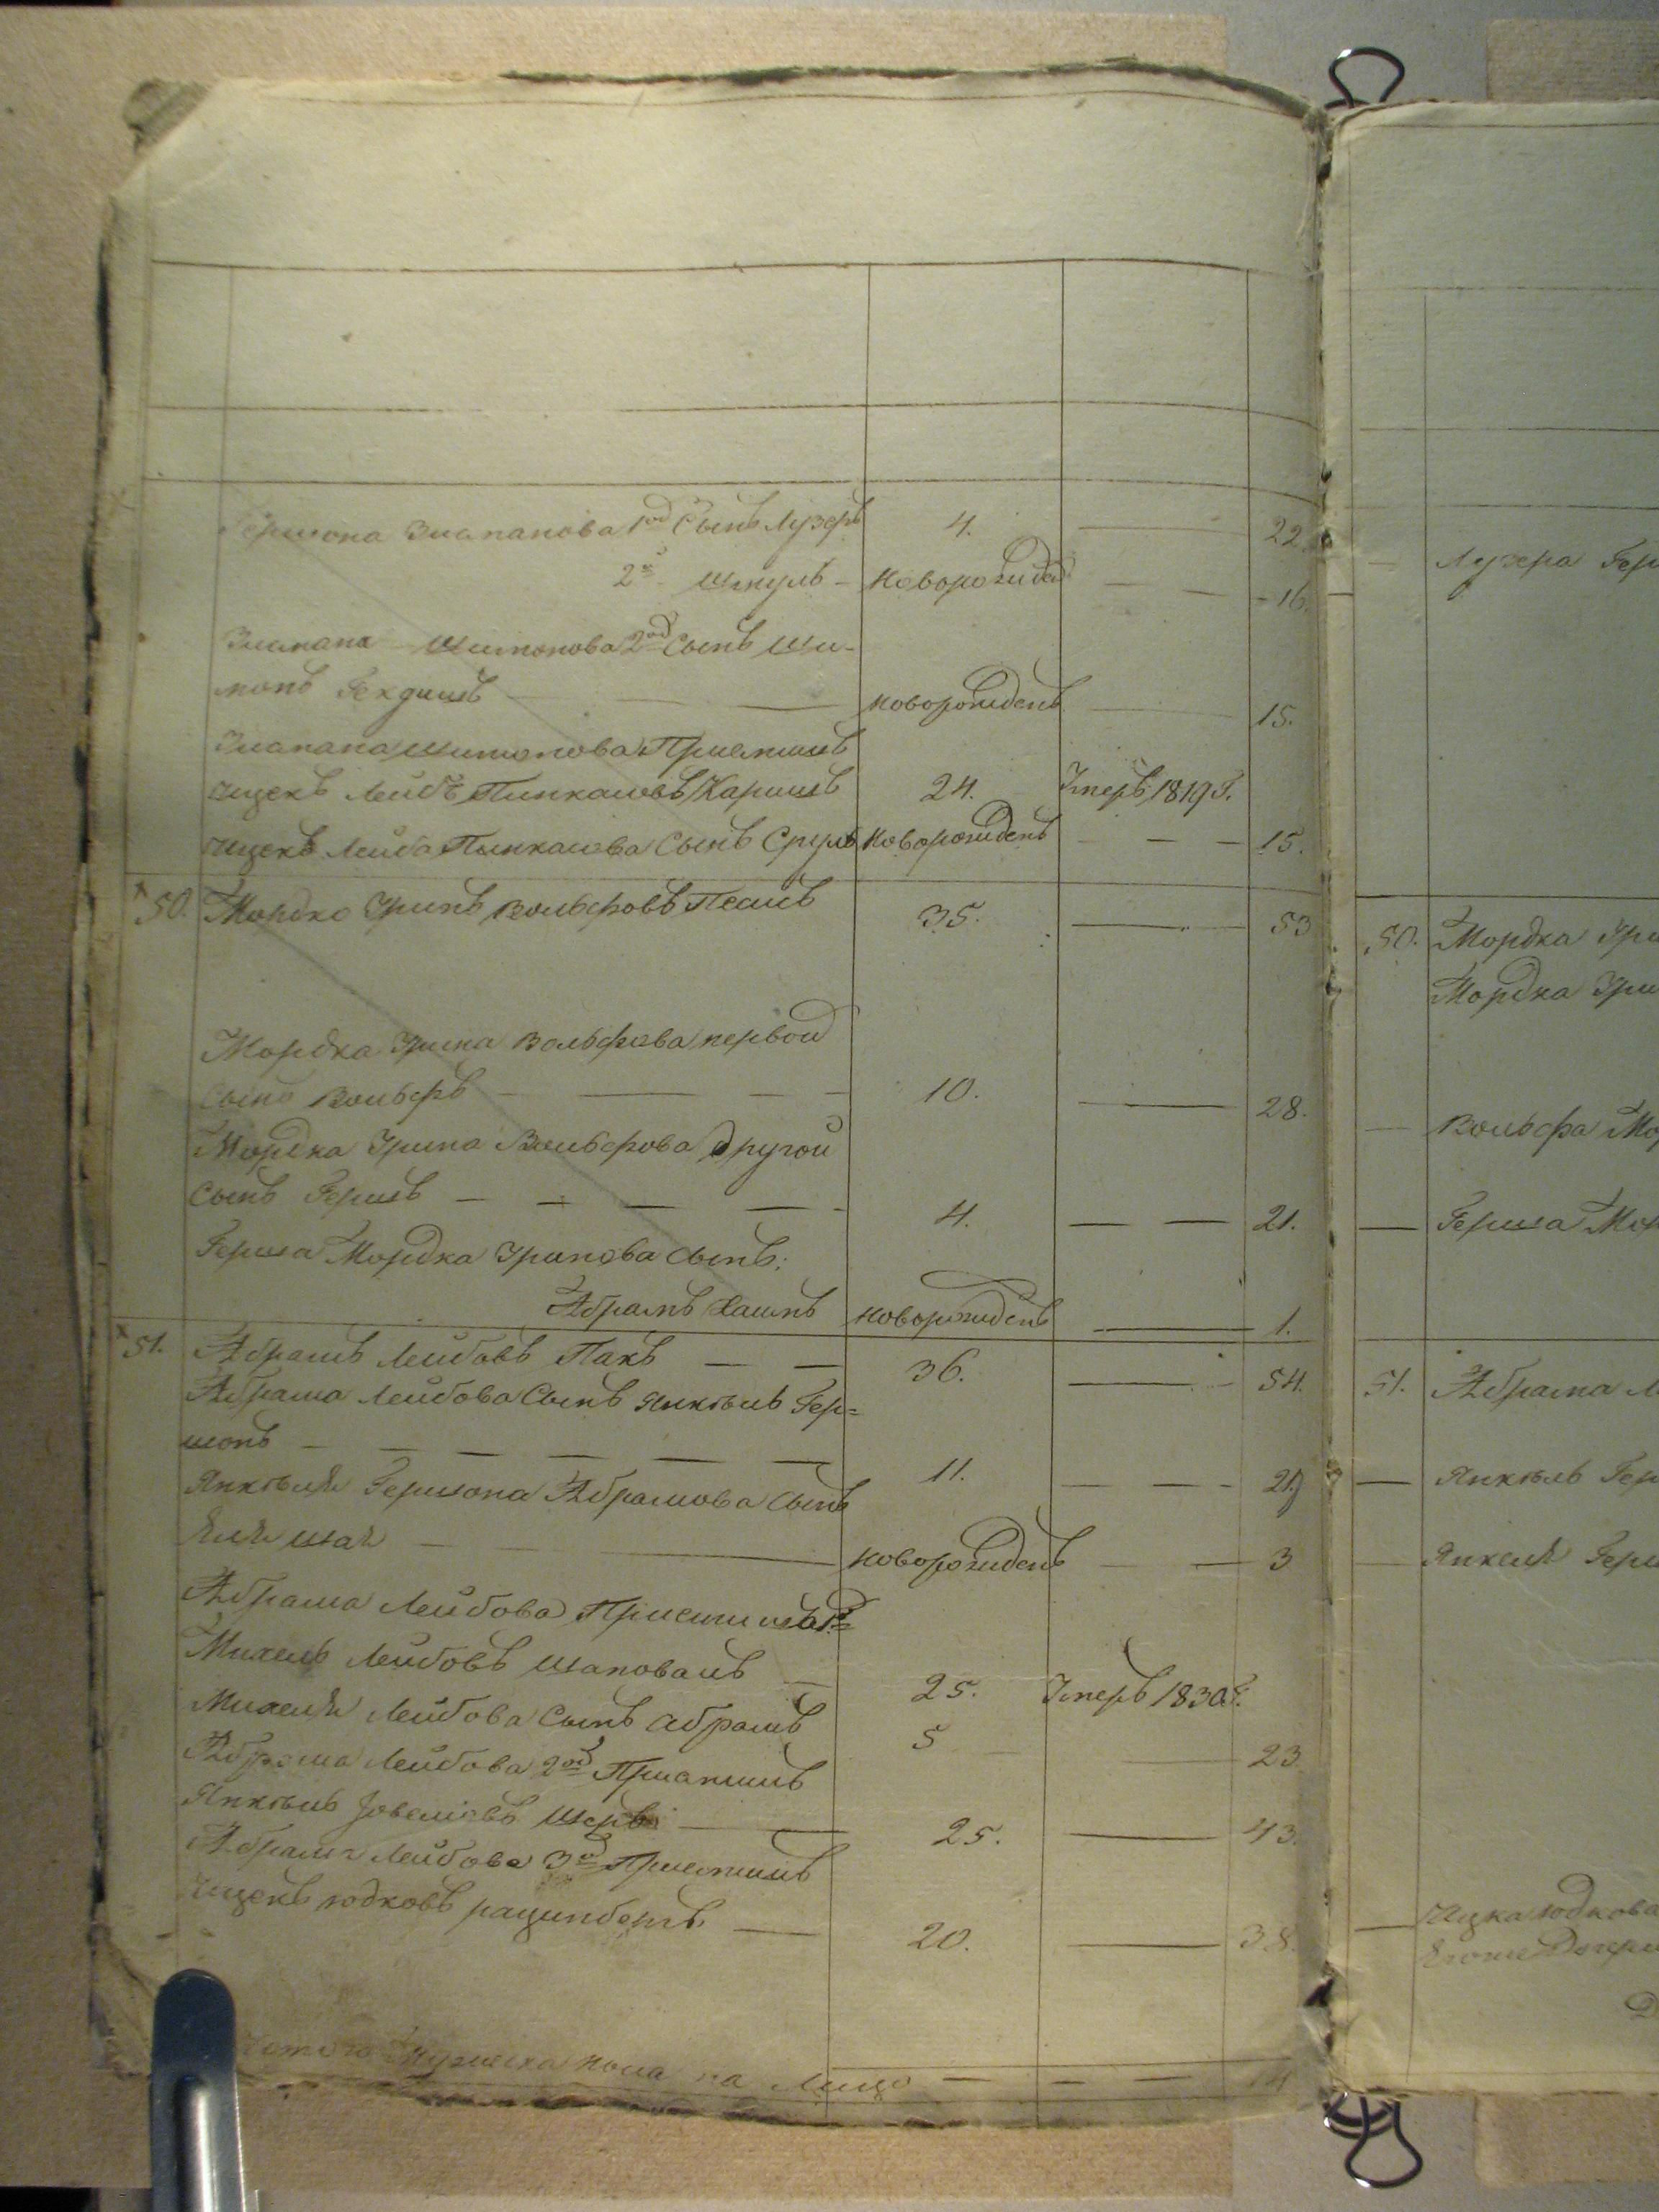 Гершона Зиманова 1ой Сынъ Лузеръ 4. — 22.
2й Шмуль — новорожден — — 16.
Зимана Шимонова 2ой Сынъ Ши-
монъ Гекдишъ — — новорожденъ — 15.
Зимана Шимонова Приемишъ
Ицекъ Лейбъ Пинкасовъ Каришъ 24. Умеръ 1819 г.
Ицекъ Лейба Пинкасова Сынъ Сруль новорожденъ — — — 15.
50. Мордко Уринъ Вольфовъ 35. — 53
Мордка Урина Вольфова первой
Сынъ Вольфъ — — — — 10. — 28.
Мордка Урина Вольфова другой
Сынъ Гершъ — — — — — 4. — — 21.
Герша Мордка Уринова Сынъ:
Абрамъ Хаимъ новорожденъ — 1.
51. Абрамъ Лейбовъ Пакъ — — 36. — 54.
Абрама Лейбова Сынъ Янкѣль Гер=
шонъ — — — — — — 11. — — — 29
Янкѣля Гершона Абрамова Сынъ
Еля Шая — — новорожденъ — — 3
Абрама Лейбова Приемишъ 1й
Михель Лейбовъ Шаповалъ — 25. Умеръ 1830 г.
Михеля Лейбова Сынъ Абрамъ 5 — — 23.
Абрама Лейбова 2ой Приемишъ
Янкѣль Іовеліовъ — 25. — 43.
Абрама Лейбова 3й Приемишъ
Ицекъ Юдковъ — 20. — 38.
Итого Мужеска пола на Лицо — — —
Лузера Гер
50. Мордка Ури
Мордка Ури
— Вольфа Мор
— Герша Мор
51. Абрама Л
— Янкѣль Гер
— Янкеля Герш
— Ицка Юдкова